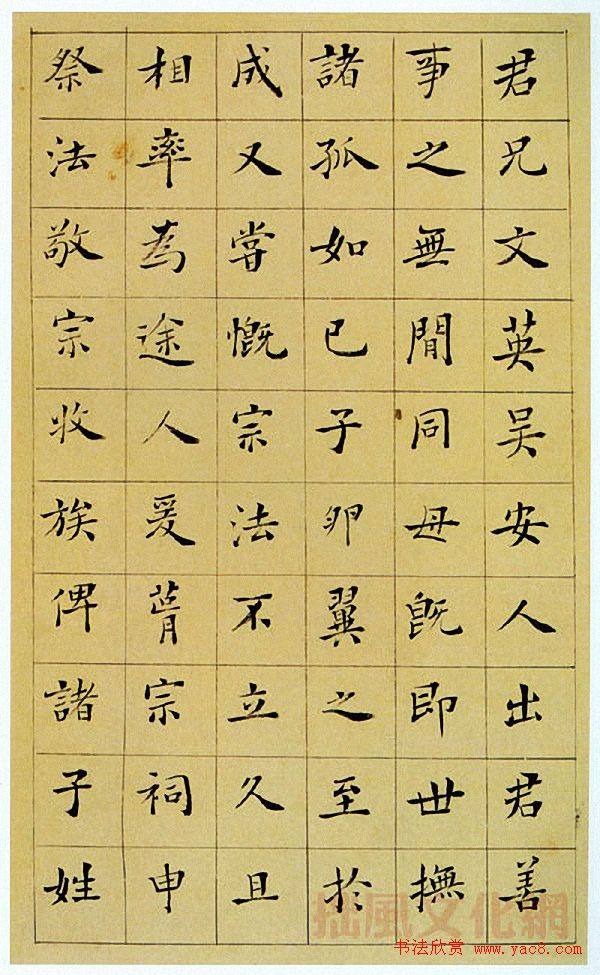 君兄文英吴安人出君善
事之無閒同母既即世撫
諸孤如已子卵翼之至於
成又嘗慨宗法不立久且
相率為途人爰葺宗祠申
祭法敬宗收族俾諸子姓
拙風文化網
书法欣赏 www.yac8.com